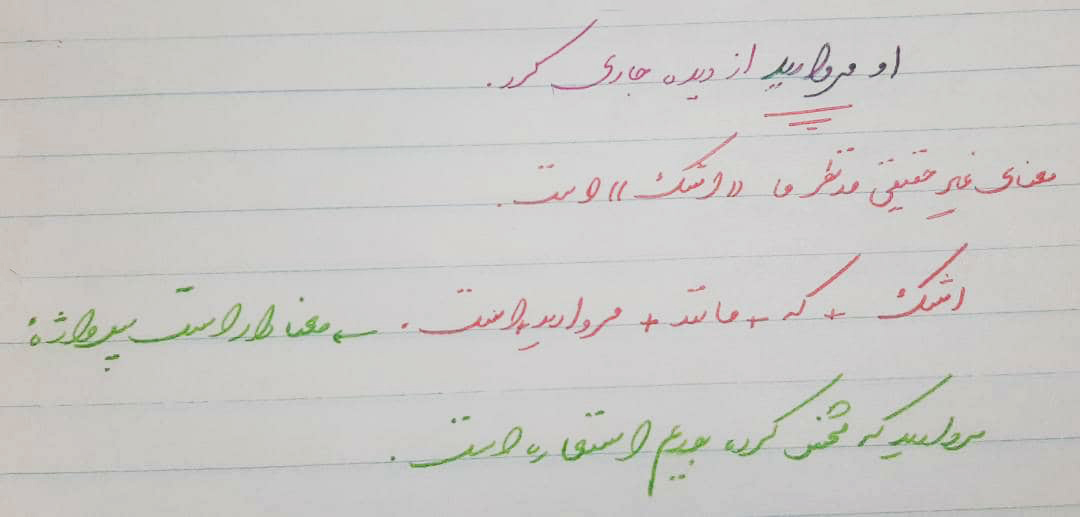 او مروارید از دیده جاری کرد.
معنای غیرِ حقیقی مدنظر ما «اشک» است.
اشک + که + مانند + مروارید + است. ← معنادار است پس واژهٔ
مروارید که مشخص کرده بودیم استعاره است.